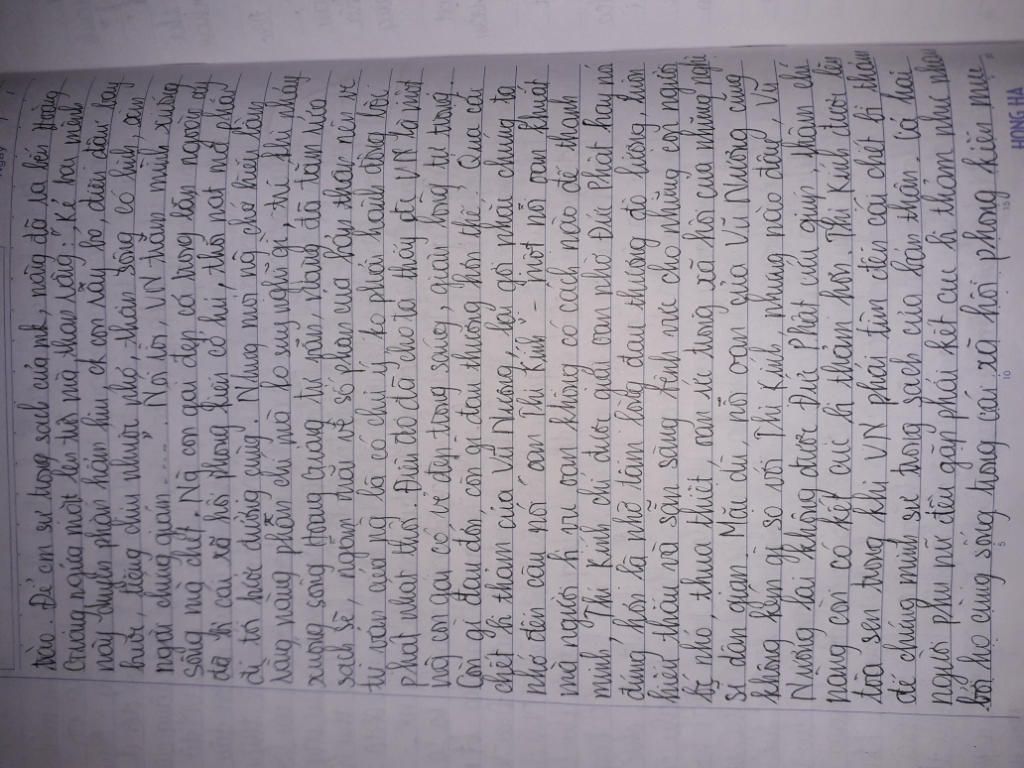 nào. Để cm sự trong sạch của mk, nàng đã ra bến Hoàng
Giang ngửa mặt lên trời mà than rằng: "Kẻ bạc mệnh
này duyên phận hẩm hiu ck con rẫy bỏ, điều đâu bay
buộc, tiếng chịu nhuốc nhơ, thần sông có linh, xin
ngài chứng giám......" Nói rồi, VN trầm mình xuống
sông mà chết. Nà con gái đẹp cả trong lẫn ngoài ấy
đã bị cái xã hội phong kiến cổ hủ, thối nát mở phẩy
đi tới bước đường cùng. Nhưng mọi ng chớ hiểu lầm
rằng nàng phẫn chí mà ko suy nghĩ gì, trc khi nhảy
xuống sông Hoang Giang tự vẫn, nàng đã tắm rửa
sạch sẽ, ngẫm nghĩ về số phận của bản thân nên sự
tự vẫn của ng là có chủ ý ko phải hành động bồi
phát nhất thời. Điều đó đã cho ta thấy đc VN là một
ng con gái có vẻ đẹp trong sáng, giàu lòng tự trọng.
Còn gì đau đớn, còn gì đau thương hơn thế! Qua cái
chết bi thảm của Vũ Nương, lại gợi nhắc chúng ta
nhớ đến câu nói "oan Thị Kính" - một nỗi oan khuất
mà người bị vu oan không có cách nào để thanh
minh, Thị Kính chỉ được giải oan nhờ Đức Phật hay nói
đúng hơn là nhờ tấm lòng đau thương độ lượng, luôn
hiểu thấu và sẵn sàng bênh vực cho những con người
bị nhỏ thua thiệt, oan ức trong xã hội của những nghệ
sĩ dân gian. Mặc dù nỗi oan của Vũ Nương cũng
không kém gì so với Thị Kính nhưng nào đâu, Vũ
Nương lại không được Đức Phật cứu giúp, thậm chí
nàng còn có kết cục bi thảm hơn. Thị Kính được lên
tòa sen trong khi VN phải tìm đến cái chết bi thảm
để chứng minh sự trong sạch của bản thân. Cả hai
người phụ nữ đều gặp phải kết cục bi thảm như nhau
bởi họ cùng sống trong cái xã hội phong kiến mục
HONG HA
5
10
15